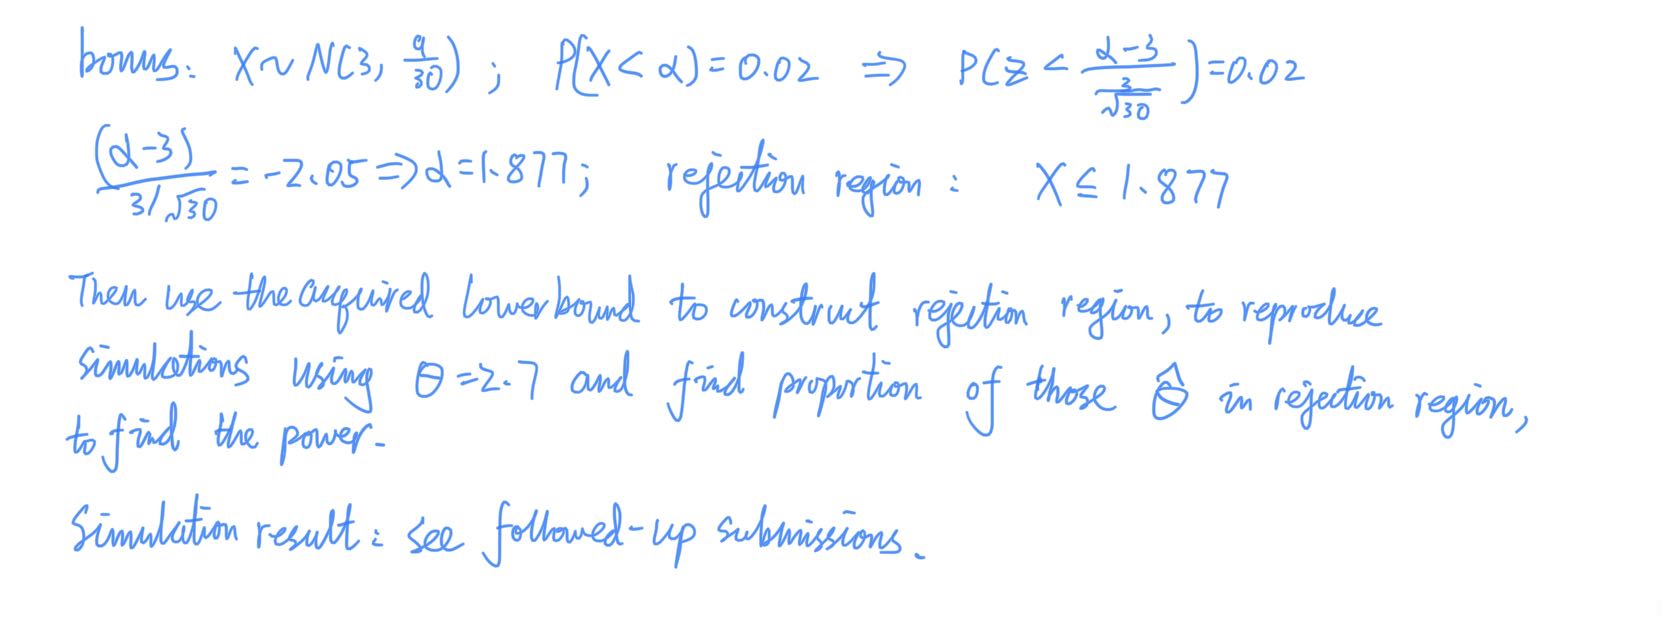 bonus: X~N(3, 9/30) ; P(X<α)=0.02 ⇒ P(z < (α-3)/(3/√30))=0.02
(α-3)/(3/√30) = -2.05 ⇒ α=1.877; rejection region: X ≤ 1.877
Then use the acquired lowerbound to construct rejection region, to reproduce
simulations using θ=2.7 and find proportion of those θ̂ in rejection region,
to find the power.
Simulation result: see followed-up submissions.